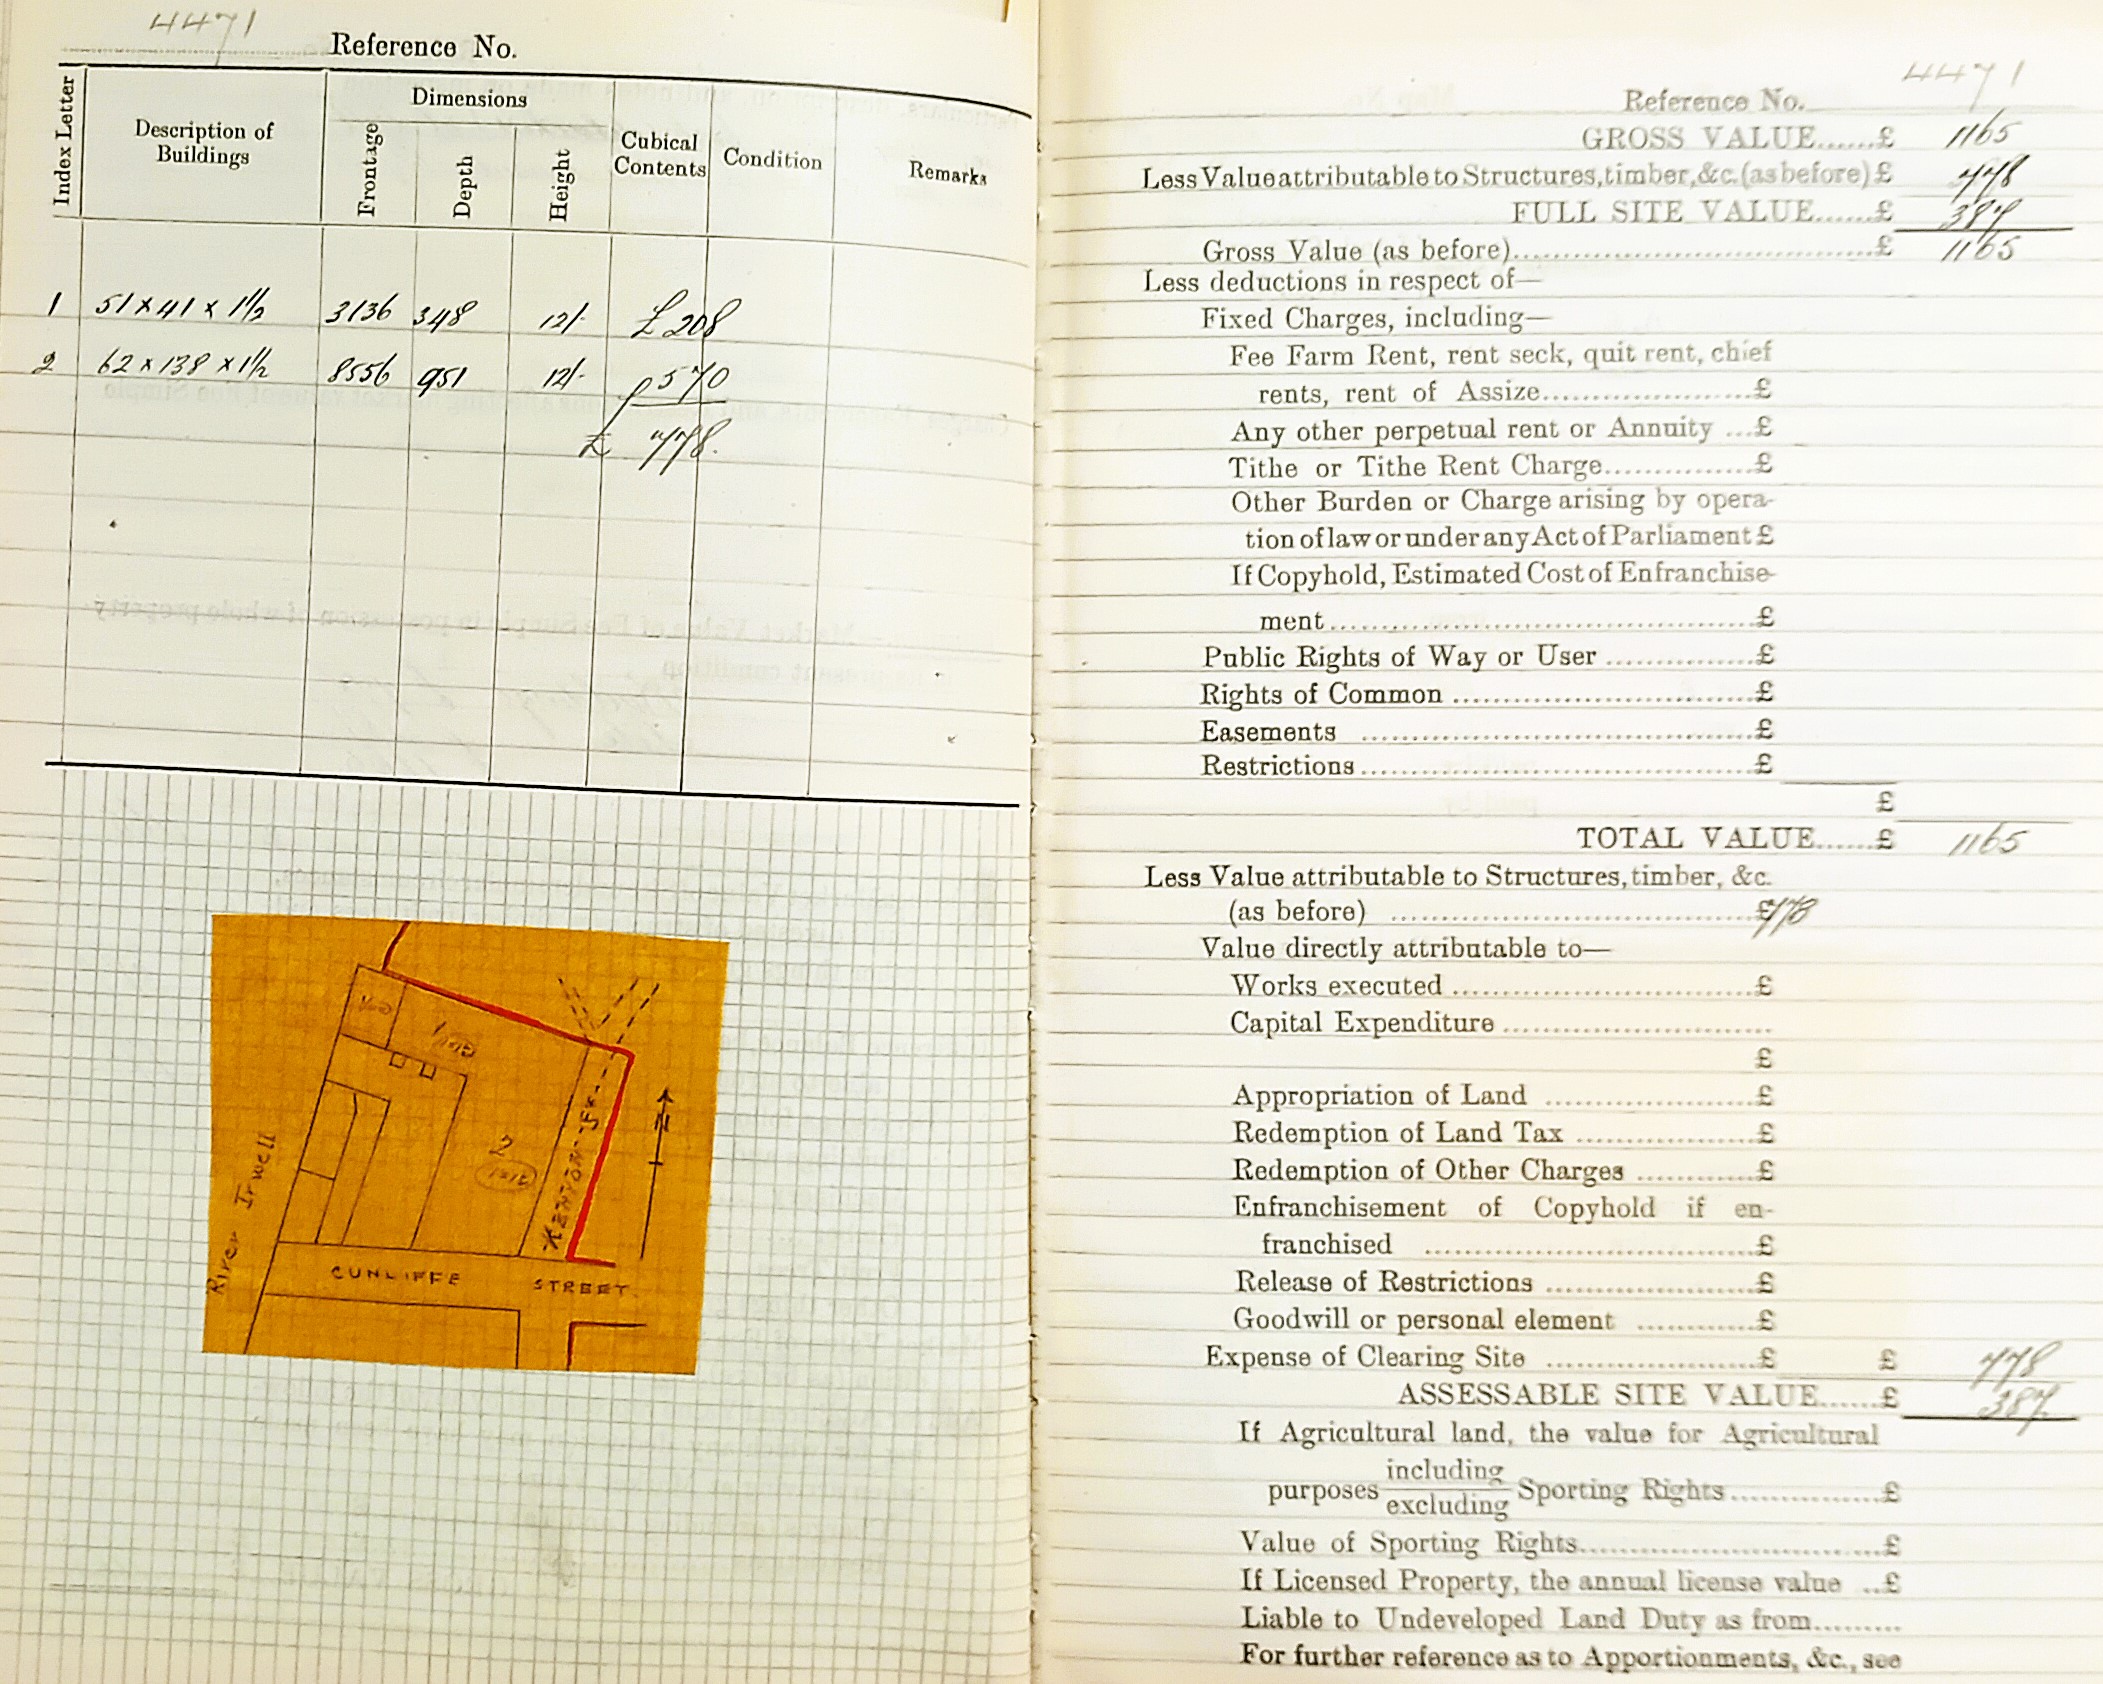 4471
Reference No.
Index Letter
Description of Buildings
Dimensions
Frontage
Depth
Height
Cubical Contents
Condition
Remarks
1 51 x 41 x 1½ 3136 348 12/- £208
2 62 x 138 x 1½ 8556 951 12/- 570
£ 778.
River Irwell
2
KENYON ST.
N
CUNLIFFE STREET
4471
Reference No.
GROSS VALUE.......£ 1165
Less Value attributable to Structures, timber, &c. (as before) £ 778
FULL SITE VALUE.......£ 387
Gross Value (as before)..........£ 1165
Less deductions in respect of—
Fixed Charges, including—
Fee Farm Rent, rent seck, quit rent, chief
rents, rent of Assize..........£
Any other perpetual rent or Annuity ...£
Tithe or Tithe Rent Charge..........£
Other Burden or Charge arising by opera-
tion of law or under any Act of Parliament £
If Copyhold, Estimated Cost of Enfranchise-
ment..........£
Public Rights of Way or User ..........£
Rights of Common ..........£
Easements ..........£
Restrictions..........£
£
TOTAL VALUE.......£ 1165
Less Value attributable to Structures, timber, &c.
(as before) ..........£778
Value directly attributable to—
Works executed ..........£
Capital Expenditure ..........
£
Appropriation of Land ..........£
Redemption of Land Tax ..........£
Redemption of Other Charges ..........£
Enfranchisement of Copyhold if en-
franchised ..........£
Release of Restrictions ..........£
Goodwill or personal element ..........£
Expense of Clearing Site ..........£ £ 778
ASSESSABLE SITE VALUE.......£ 387
If Agricultural land, the value for Agricultural
including
purposes Sporting Rights..........£
excluding
Value of Sporting Rights..........£
If Licensed Property, the annual license value ..£
Liable to Undeveloped Land Duty as from.........
For further reference as to Apportionments, &c., see